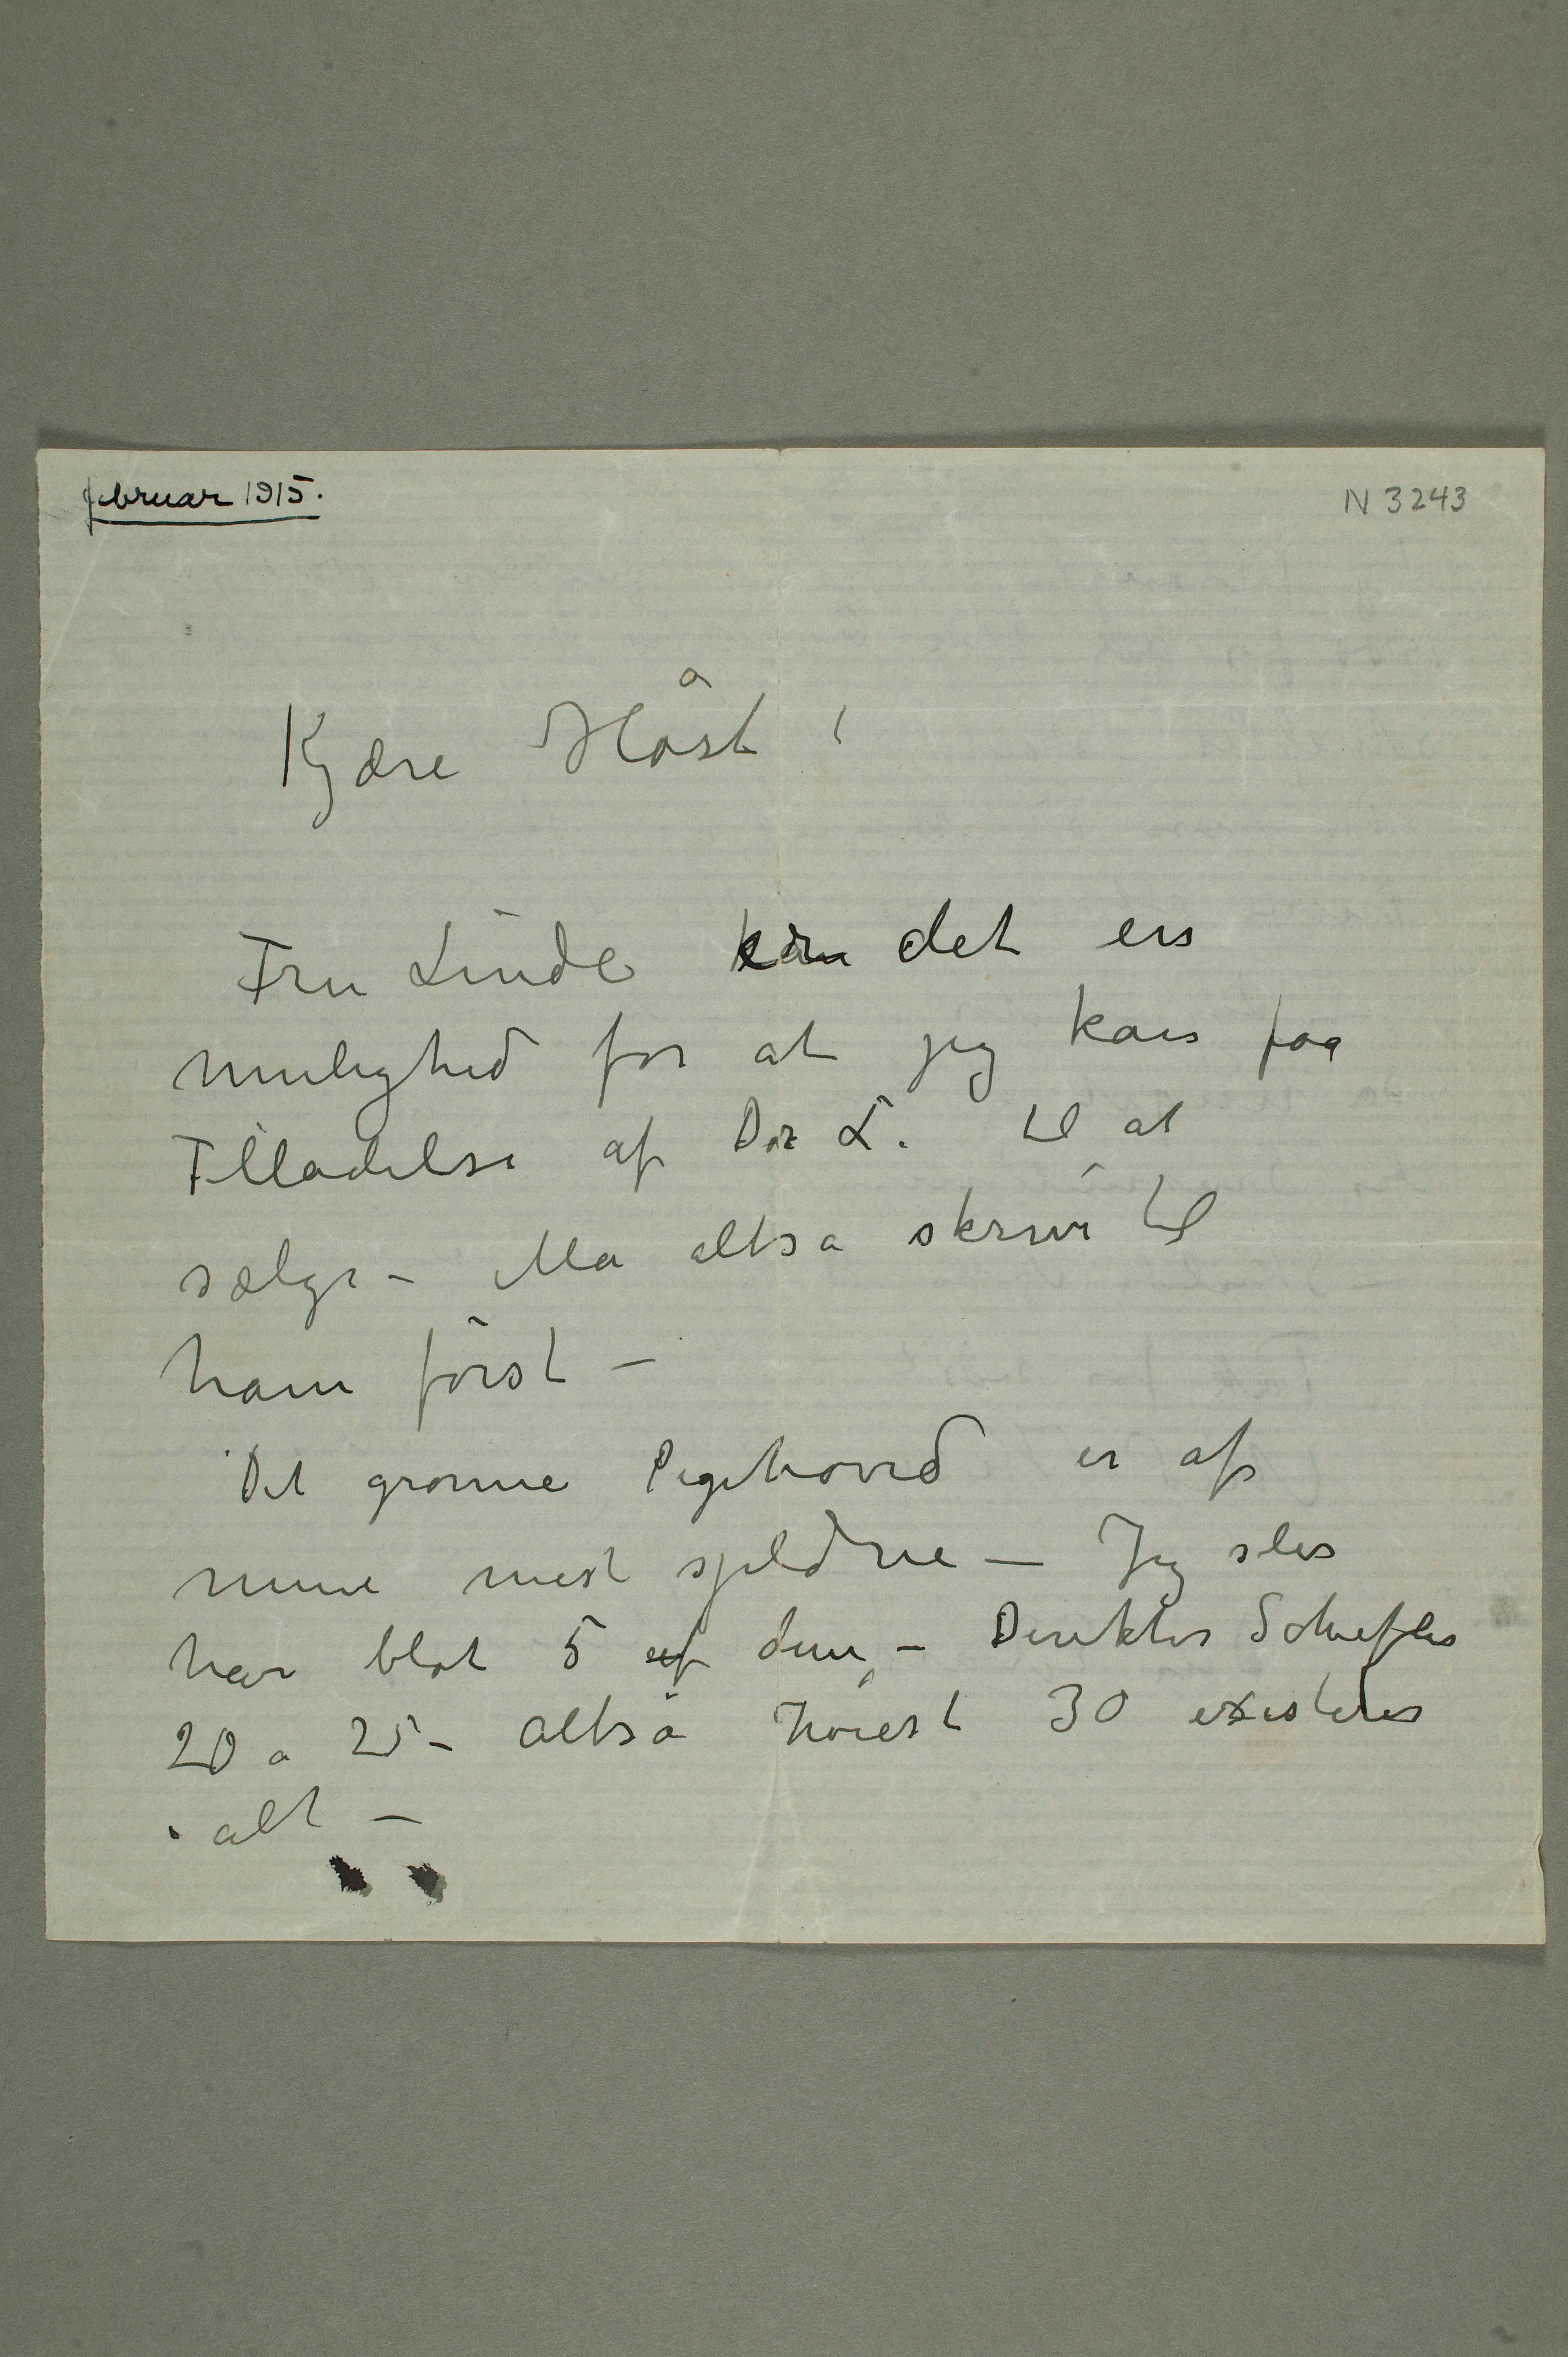 februar 1915.
N 3243
Kjære Høst!
Fru Linde er det en
mulighed for at jeg kan faa
Tilladelse af Dr L. til at
sælge – Må altså skrive til
ham først –
Det grønne Pigehoved er af
mine mest sjeldne – Jeg selv
har blot 5 af dem – Direktør Schiefler
20 a 25 – altså høiest 30 existerer
i alt –